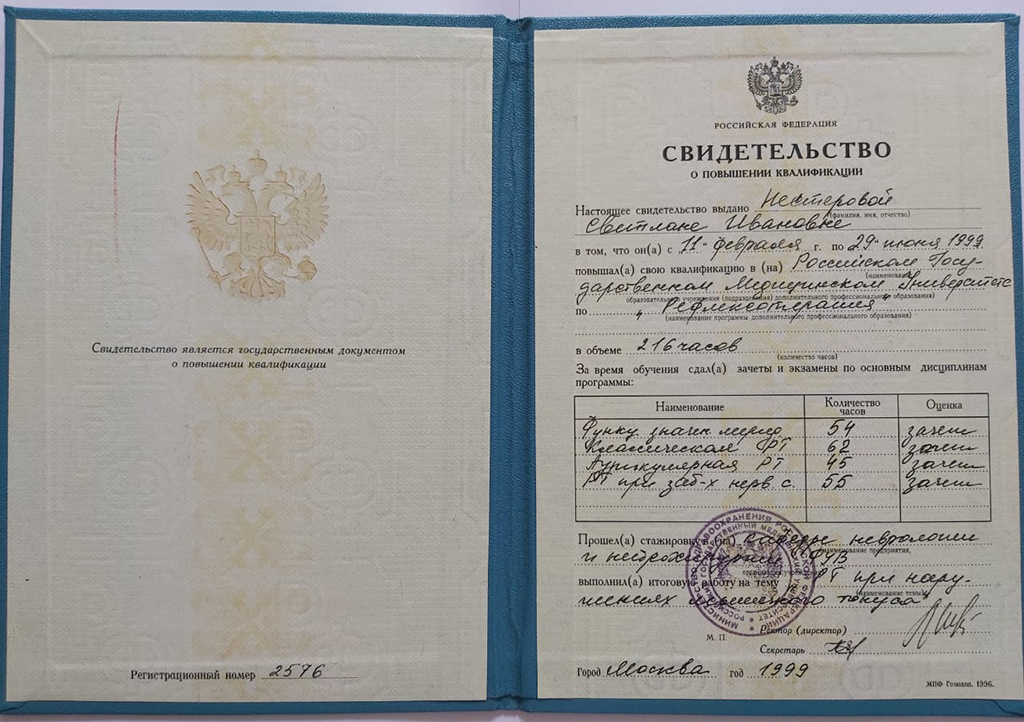 Свидетельство является государственным документом
о повышении квалификации
Регистрационный номер 2576
РОССИЙСКАЯ ФЕДЕРАЦИЯ
СВИДЕТЕЛЬСТВО
О ПОВЫШЕНИИ КВАЛИФИКАЦИИ
Настоящее свидетельство выдано Нестеровой
(фамилия, имя, отчество)
Светлане Ивановне
в том, что он(а) с „11“ февраля г. по „29“ июня 1999
повышал(а) свою квалификацию в (на) Российском Госу-
(наименование
дарственном Медицинском Университете
образовательного учреждения (подразделения) дополнительного профессионального образования)
по „Рефлексотерапия“
(наименование программы дополнительного профессионального образования)
в объеме 216 часов
(количество часов)
За время обучения сдал(а) зачеты и экзамены по основным дисциплинам
программы:
Наименование Количество часов Оценка
Функц. значен 54 зачет
Классическая РТ 62 зачет
Аурикулярная РТ 45 зачет
РТ при заб-х нерв. с. 55 зачет
Прошел(а) стажировку в (на) кафедре неврологии
(наименование предприятия,
и нейрохирургии ФУВ
выполнил(а) итоговую работу на тему РТ при нару-
(наименование темы)
шениях мышечного тонуса“
МИНИСТЕРСТВО ЗДРАВООХРАНЕНИЯ РОССИЙСКОЙ ФЕДЕРАЦИИ
РОССИЙСКИЙ ГОСУДАРСТВЕННЫЙ МЕДИЦИНСКИЙ УНИВЕРСИТЕТ
М. П. Ректор (директор)
Секретарь
Город Москва год 1999
МПФ Гознака. 1996.